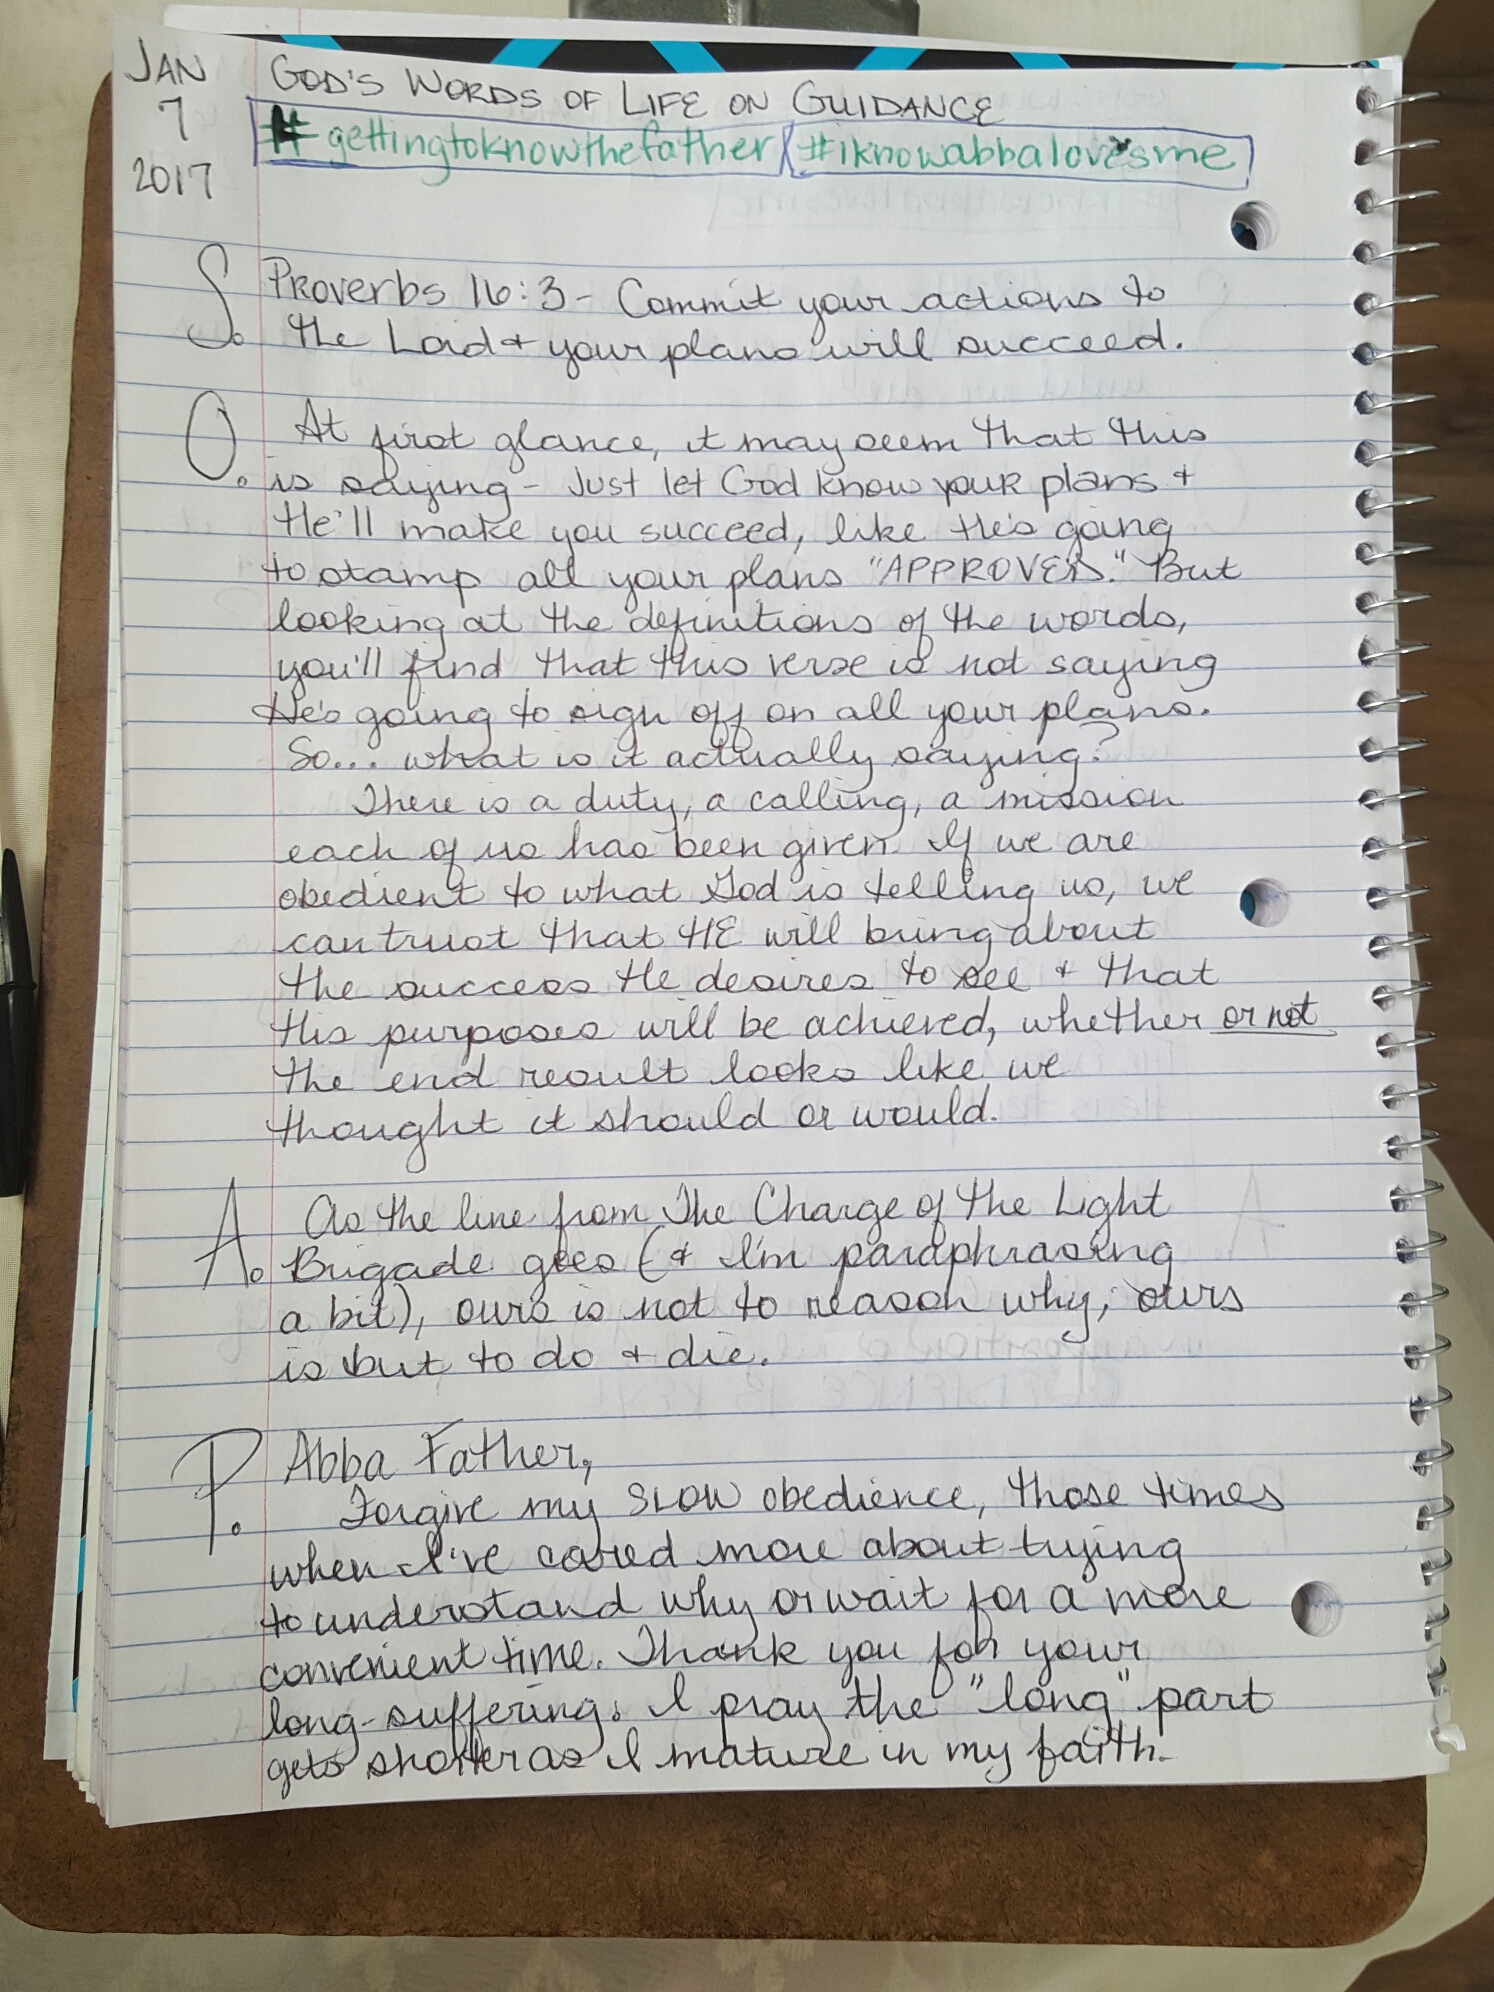 JAN
7
2017
GOD'S WORDS OF LIFE ON GUIDANCE
#gettingtoknowthefather #iknowabbalovesme
S. Proverbs 16:3 - Commit your actions to
the Lord & your plans will succeed.
O. At first glance, it may seem that this
is saying - Just let God know your plans &
He'll make you succeed, like He's going
to stamp all your plans "APPROVED." But
looking at the definitions of the words,
you'll find that this verse is not saying
He's going to sign off on all your plans.
So... what is it actually saying?
There is a duty, a calling, a mission
each of us has been given. If we are
obedient to what God is telling us, we
can trust that HE will bring about
the success He desires to see & that
His purposes will be achieved, whether or not
the end result looks like we
thought it should or would.
A. As the line from The Charge of the Light
Brigade goes (& I'm paraphrasing
a bit), ours is not to reason why; ours
is but to do & die.
P. Abba Father,
Forgive my SLOW obedience, those times
when I've cared more about trying
to understand why or wait for a more
convenient time. Thank you for your
long-suffering. I pray the "long" part
gets shorter as I mature in my faith.